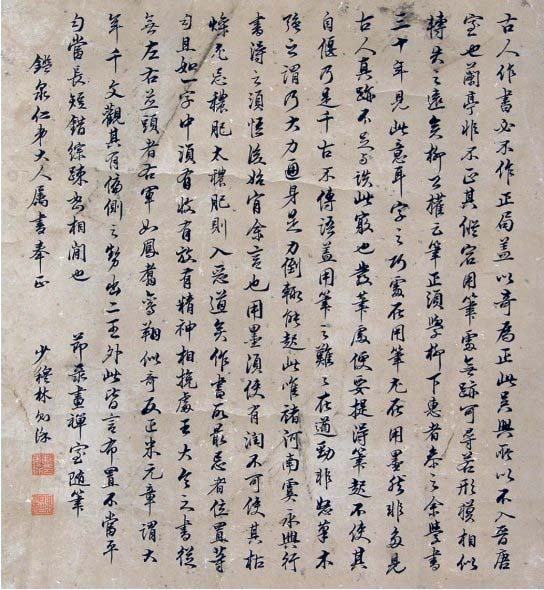 古人作書必不作正局盖以奇為正此吳興所以不入晉唐
室也蘭亭非不正其縱宕用筆處無跡可尋若形模相似
轉去之遠矣柳公權云筆正須學柳下惠者參之余學書
三十年見此意耳字之巧處在用筆尤在用墨然非多見
古人真跡不足與談此竅也發筆處便要提得筆起不使其
自偃乃是千古不傳語盖用筆之難難在遒勁非怒筆木
强之謂乃大力通身是力倒輒能起此惟褚河南虞永興行
書得之須悟後始肯余言也用墨須使有潤不可使其枯
燥尤忌穠肥太穠肥則入惡道矣作書所最忌者位置等
勻且如一字中須有收有放有精神相挽處王大令之書從
無左右並頭者右軍如鳳翥鸞翔似奇反正米元章謂大
年千文觀其有偏側之勢出二王外此皆言布置不當平
勻當長短錯綜疎密相間也 節录畫禪室随筆
鑑泉仁弟大人属書奉正 少穆林則徐